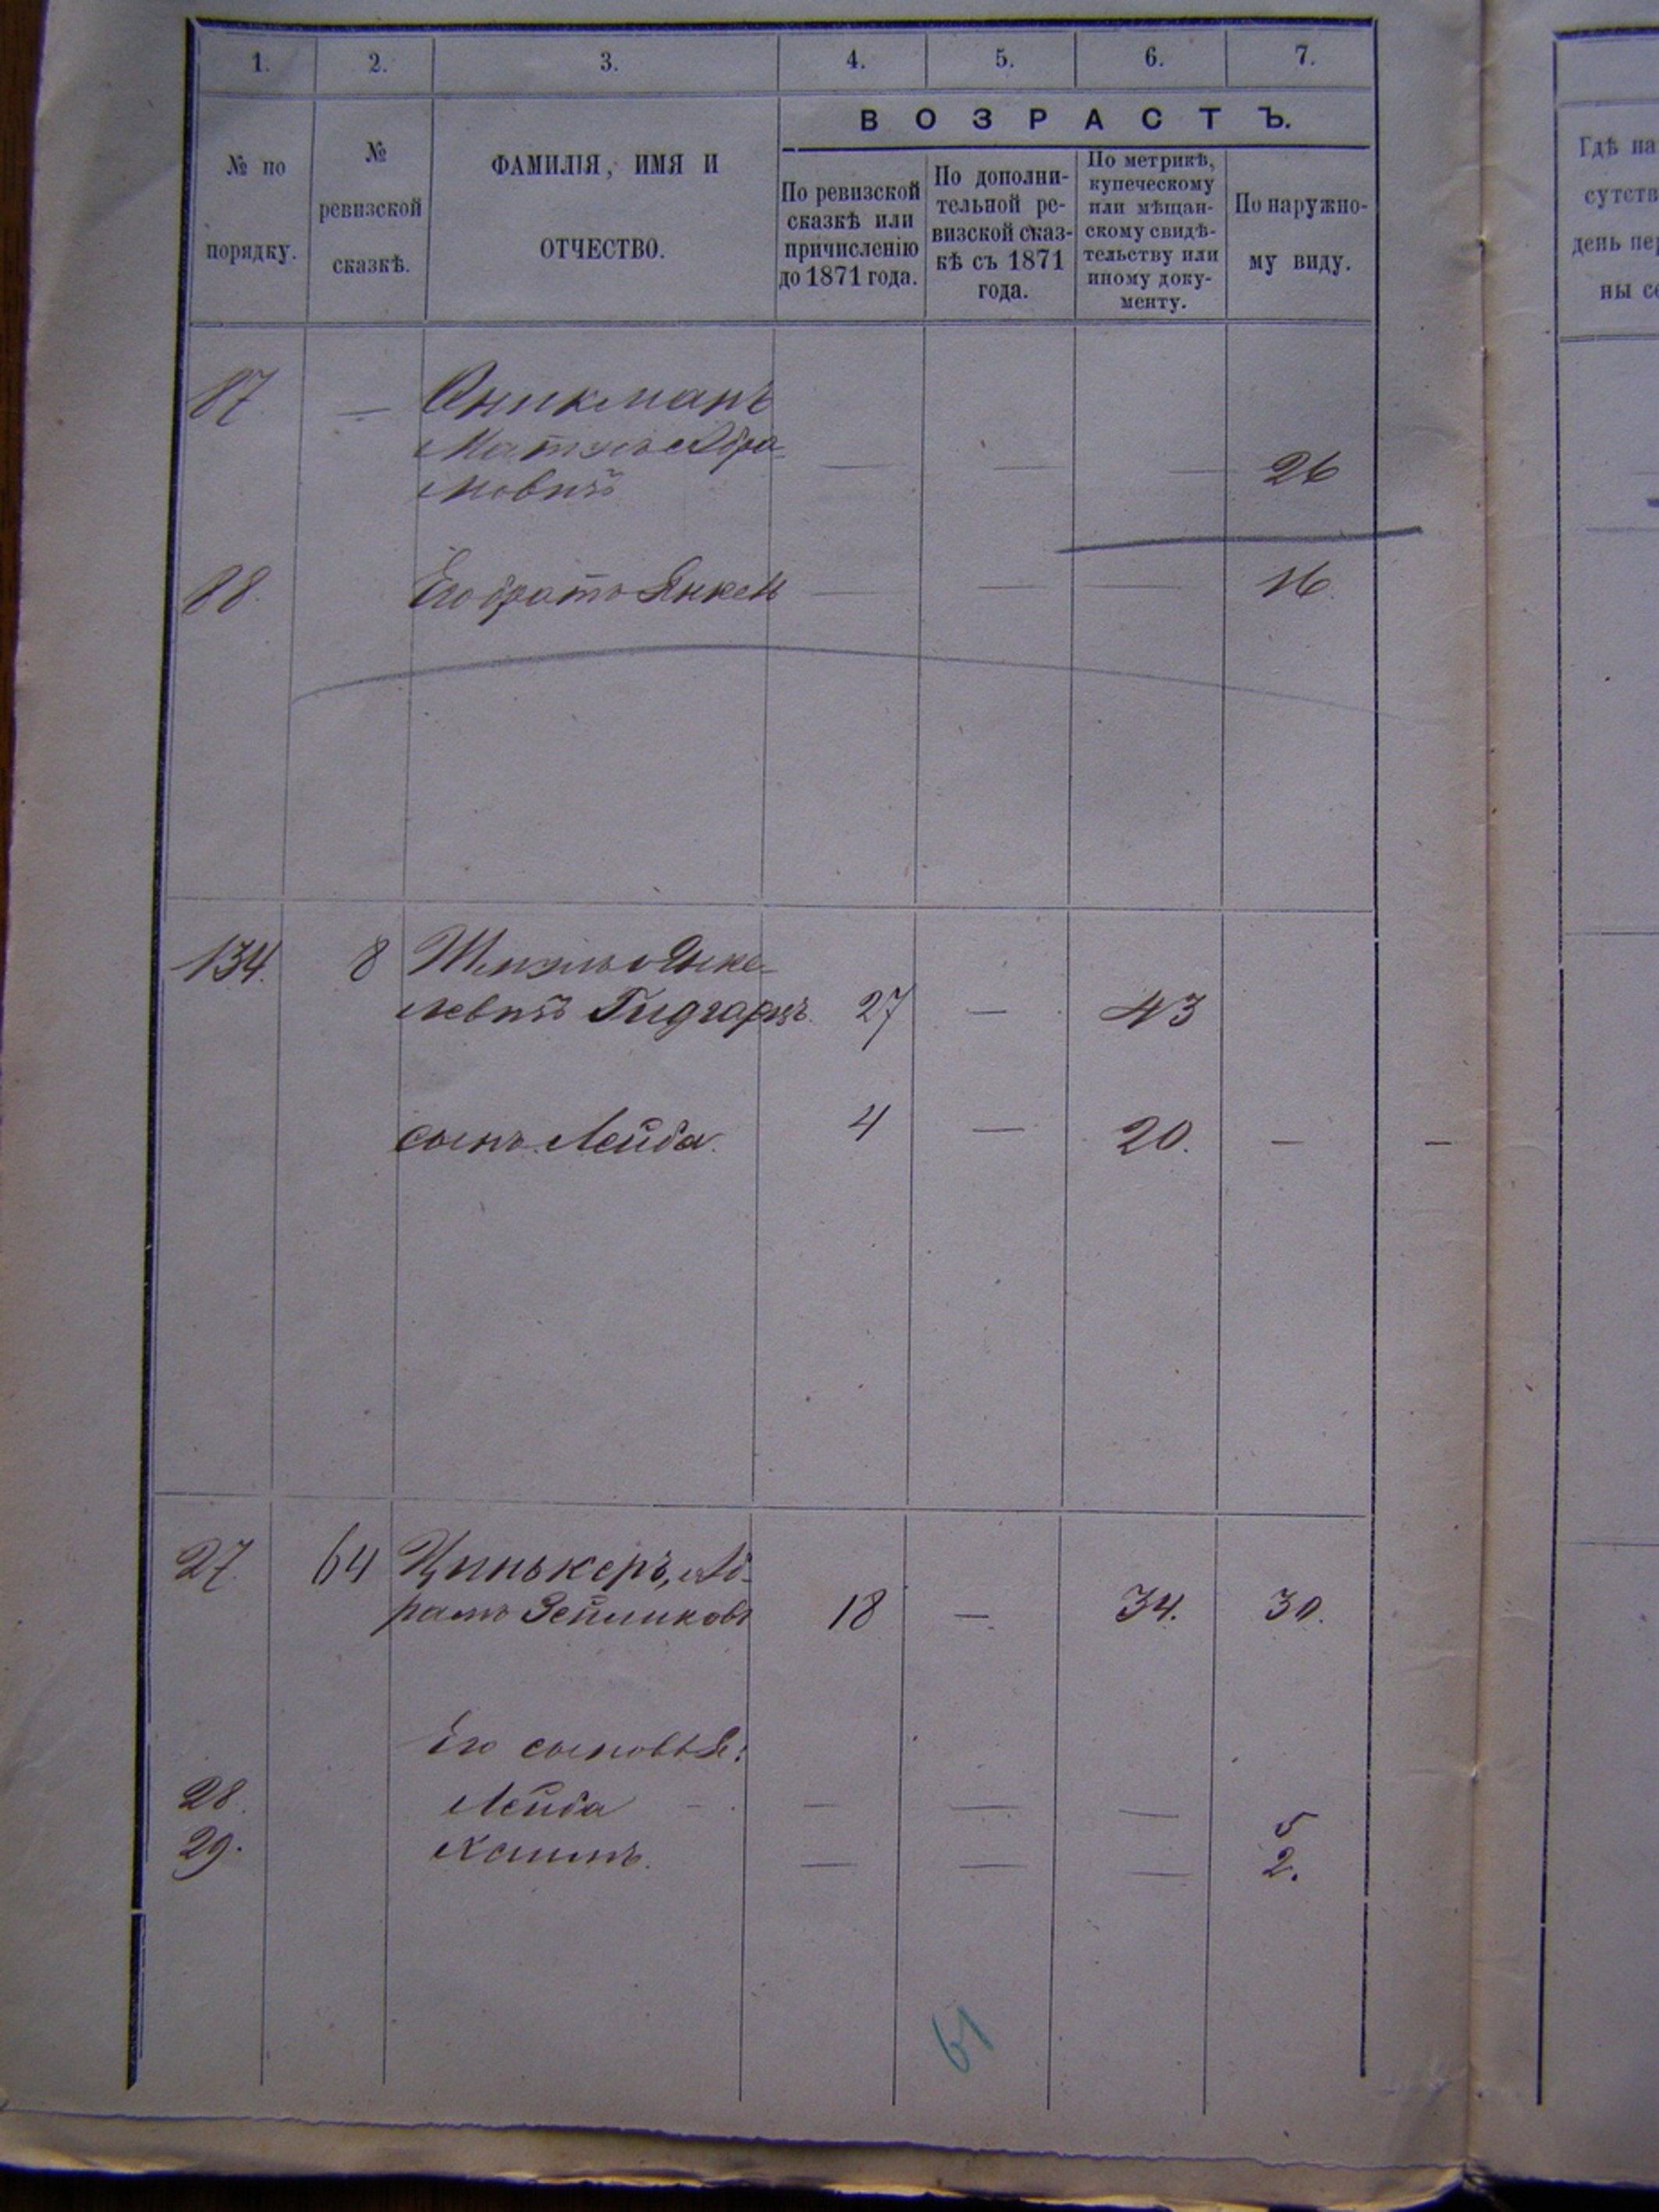 1. 2. 3. 4. 5. 6. 7.
№ по порядку.
№ ревизской сказкѣ.
ФАМИЛІЯ, ИМЯ И
ОТЧЕСТВО.
ВОЗРАСТЪ.
По ревизской
сказкѣ или
причисленію
до 1871 года.
По дополни-
тельной ре-
визской сказ-
кѣ съ 1871
года.
По метрикѣ,
купеческому
или мѣщан-
скому свидѣ-
тельству или
иному доку-
менту.
По наружно-
му виду.
Гдѣ на
сутств
день пер
ны со
87 — Оникманъ
Абра-
мовичъ — — — 26
88. Его братъ Янкель — — — 16.
134. 8 Шмуль Янке-
левичъ Гидгарцъ. 27 — 43
сынъ Лейба. 4 — 20. — —
27. 64 Цинькеръ, Аб-
рамъ Зейликовъ 18 — 34. 30.
Его сыновья:
28. Лейба — — — 5
29. Хаимъ. — — — 2.
61